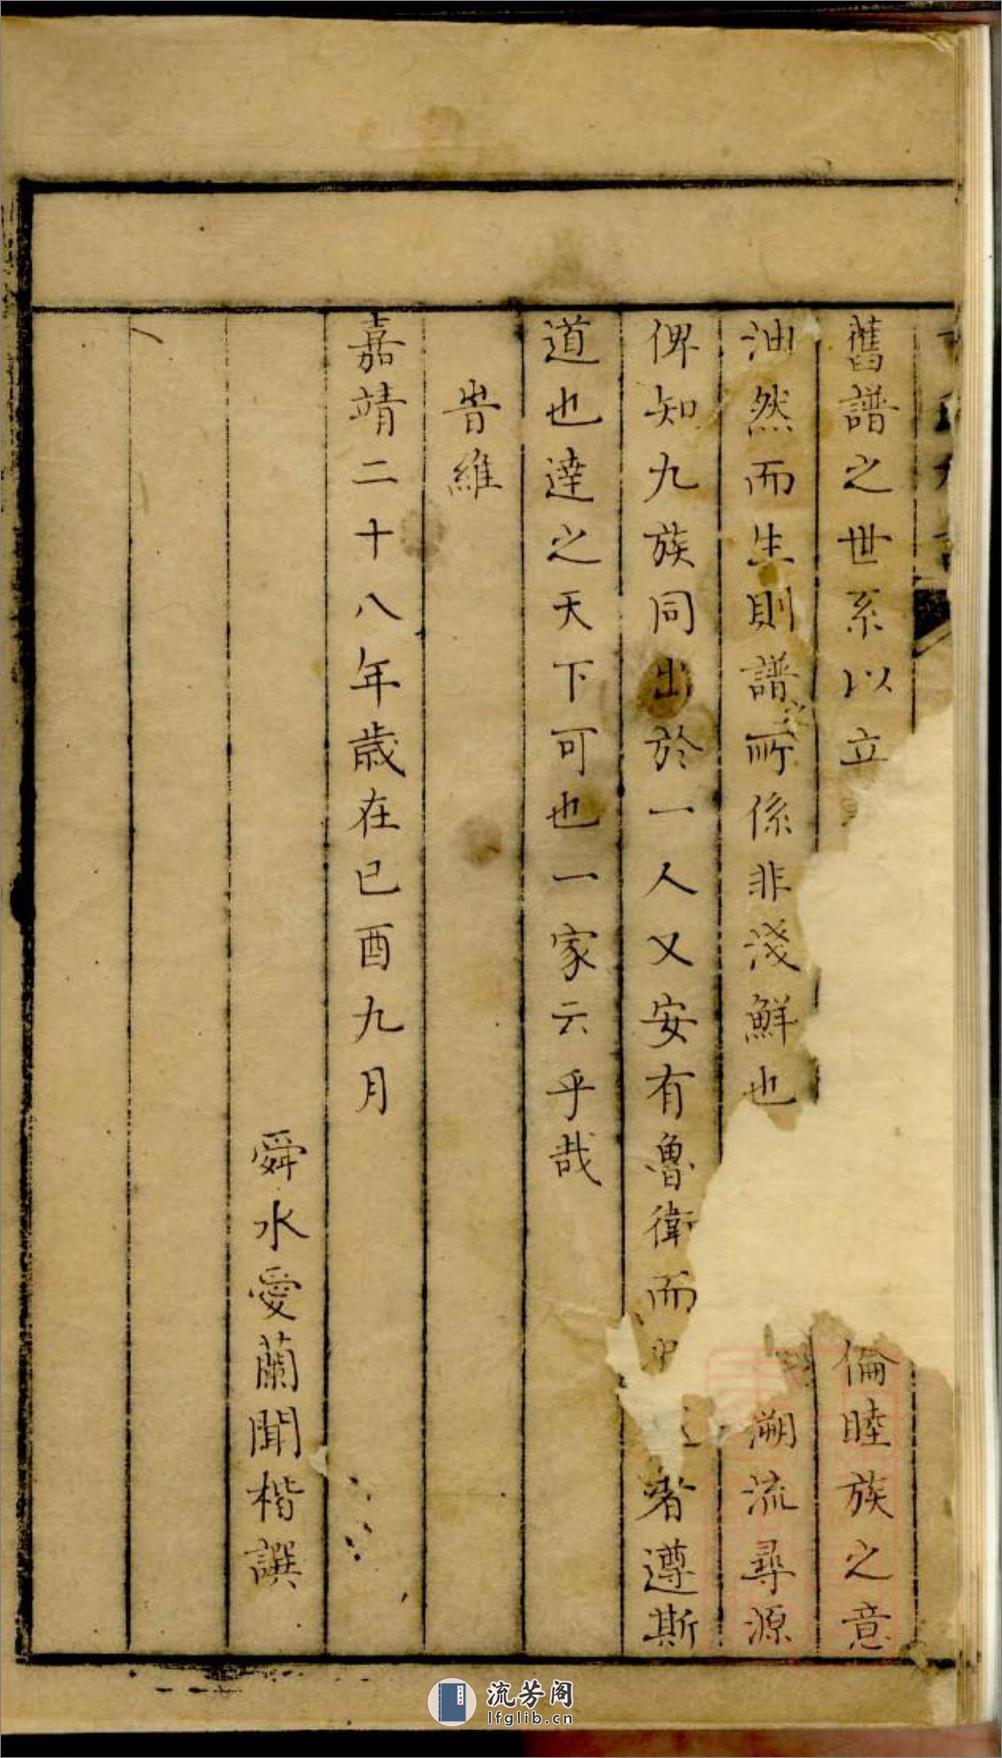 舊譜之世系以立倫睦族之意
油然而生則譜所係非淺鮮也溯流尋源
俾知九族同出於一人又安有魯衛而者遵斯
道也達之天下可也一家云乎哉
旹維
嘉靖二十八年歲在已酉九月
舜水愛蘭聞楷譔
流芳阁
lfglib.cn